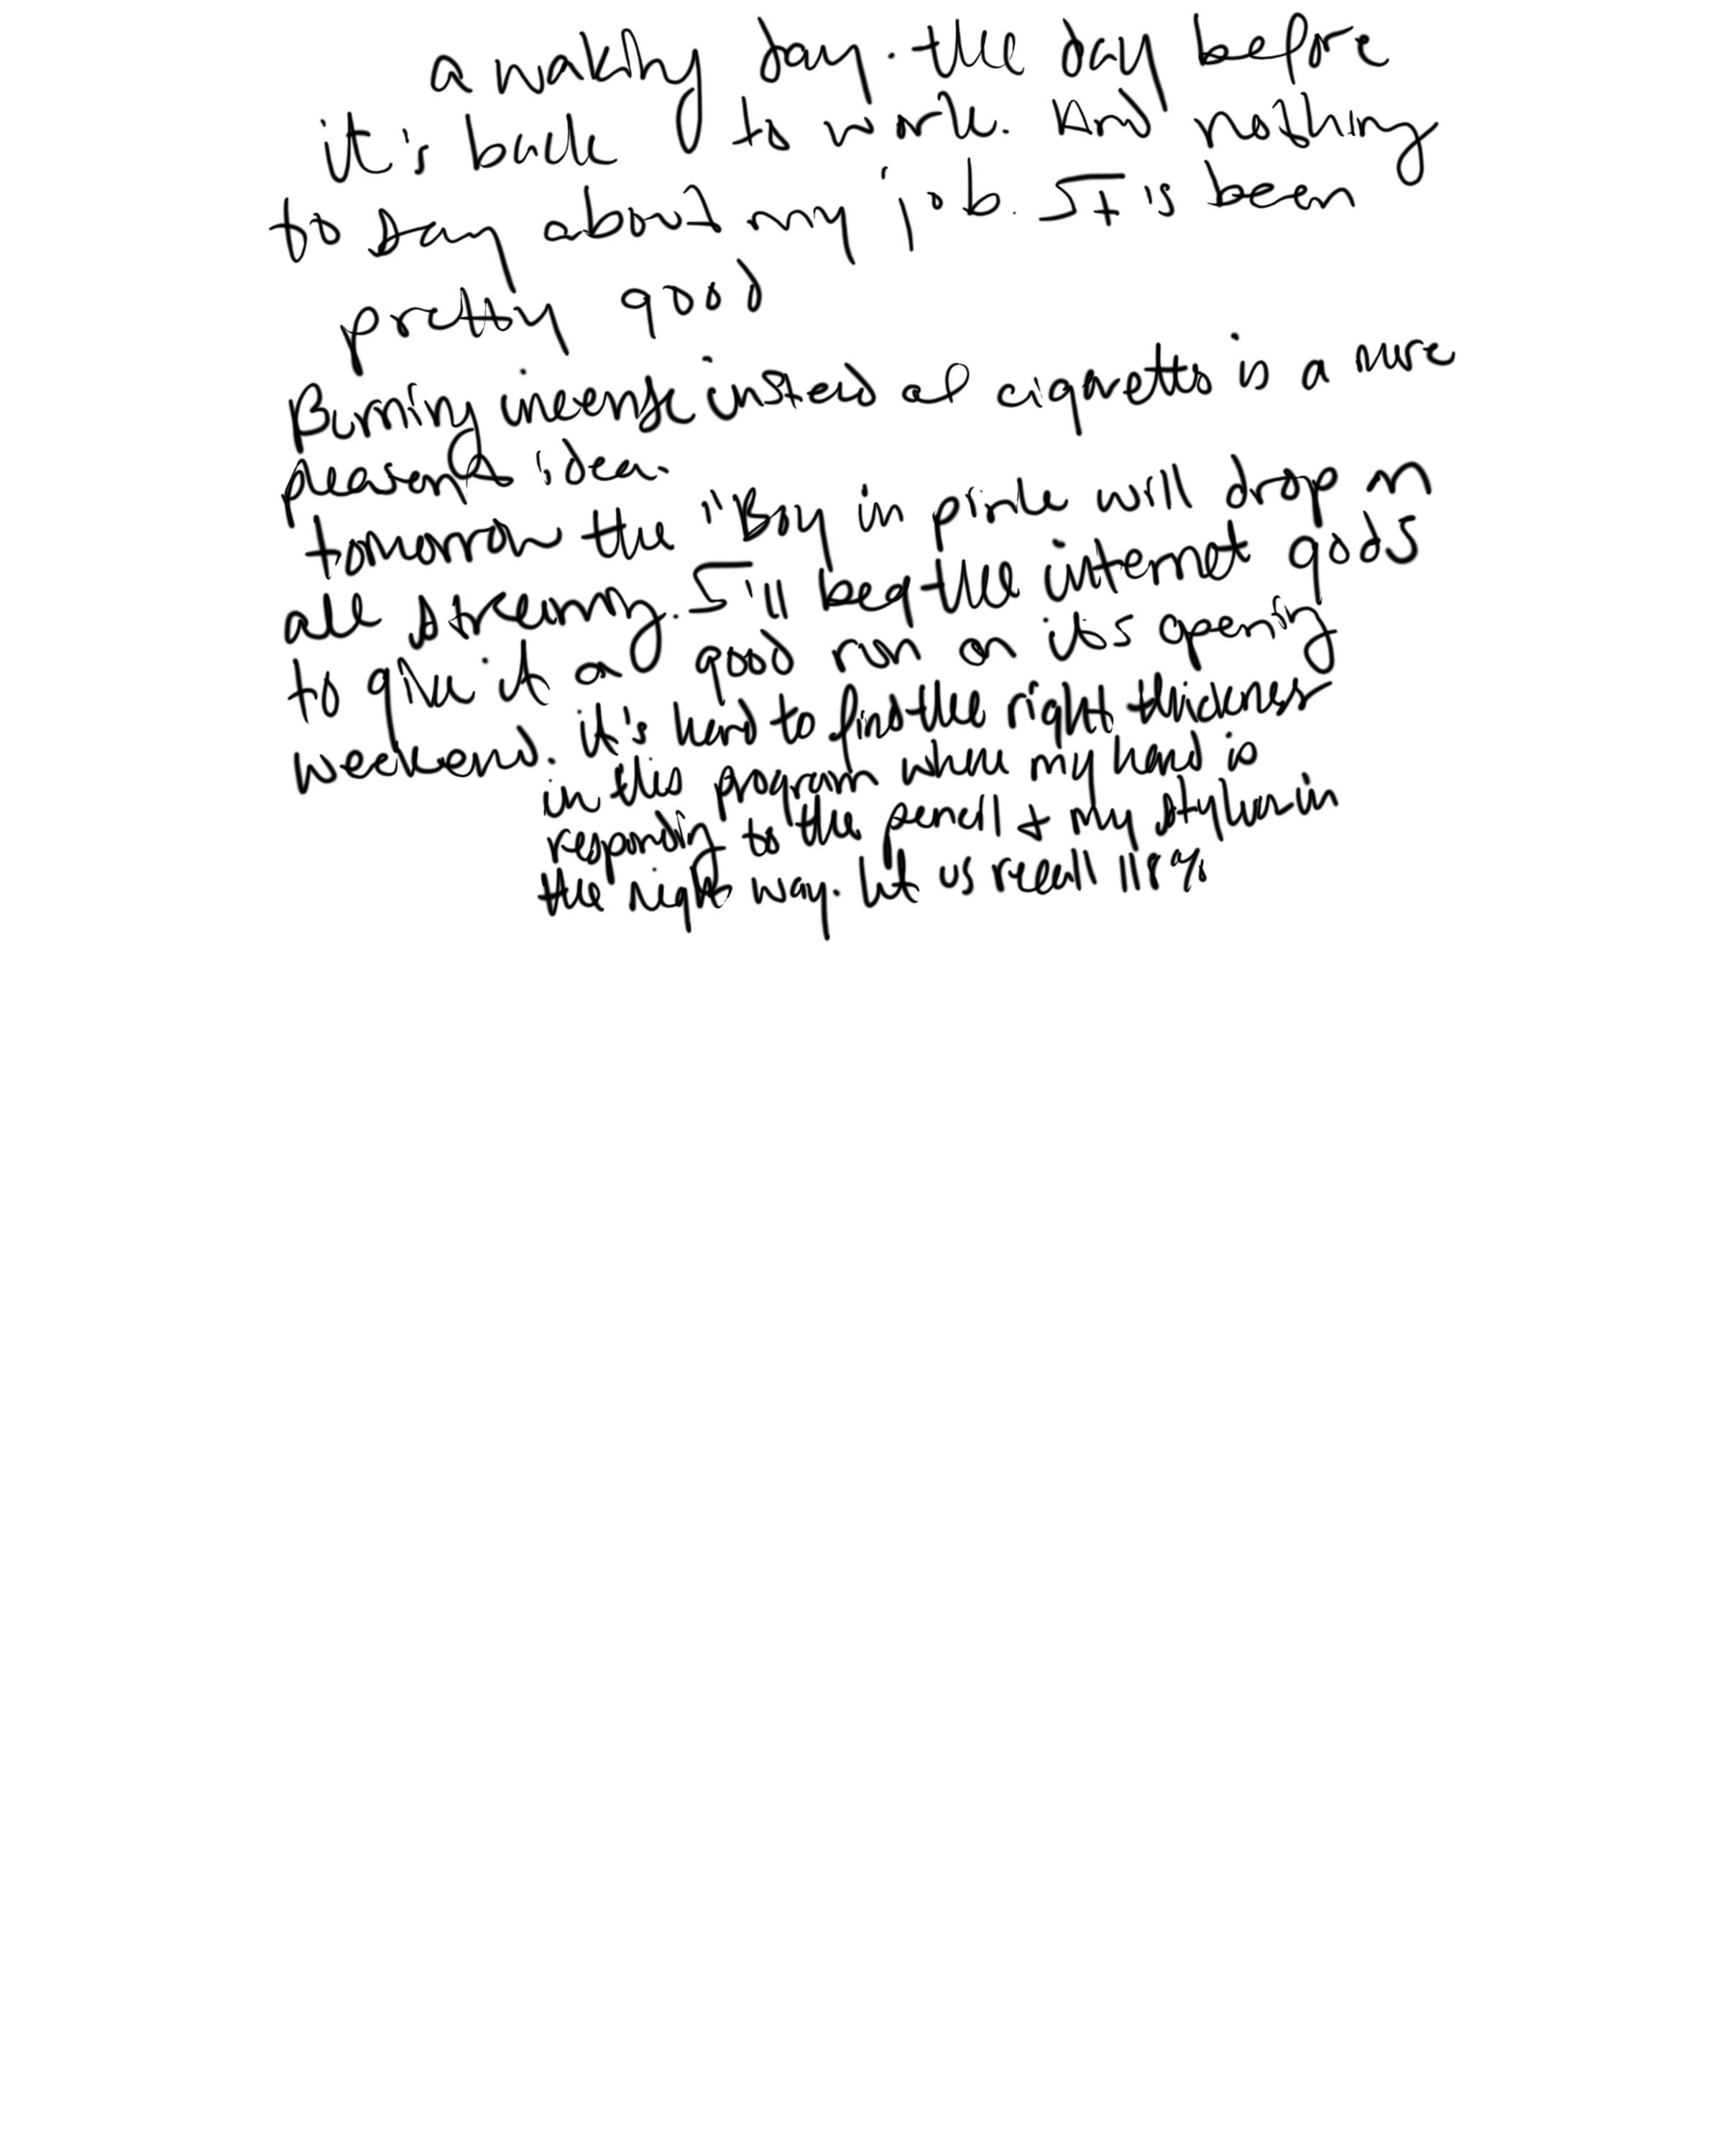 a day. the day before
it's back to work. And nothing
to say about my job. It's been
pretty good
Burning incense instead of cigarettes is a more
pleasant idea.
tomorrow the "Boy in pink will drop on
all streaming. I'll beg the internet gods
to give it a good run on its opening
weekend. it's hard to find the right thickness
in this program where my hand is
responding to the pencil & my stylus in
the right way. let us recall 118%